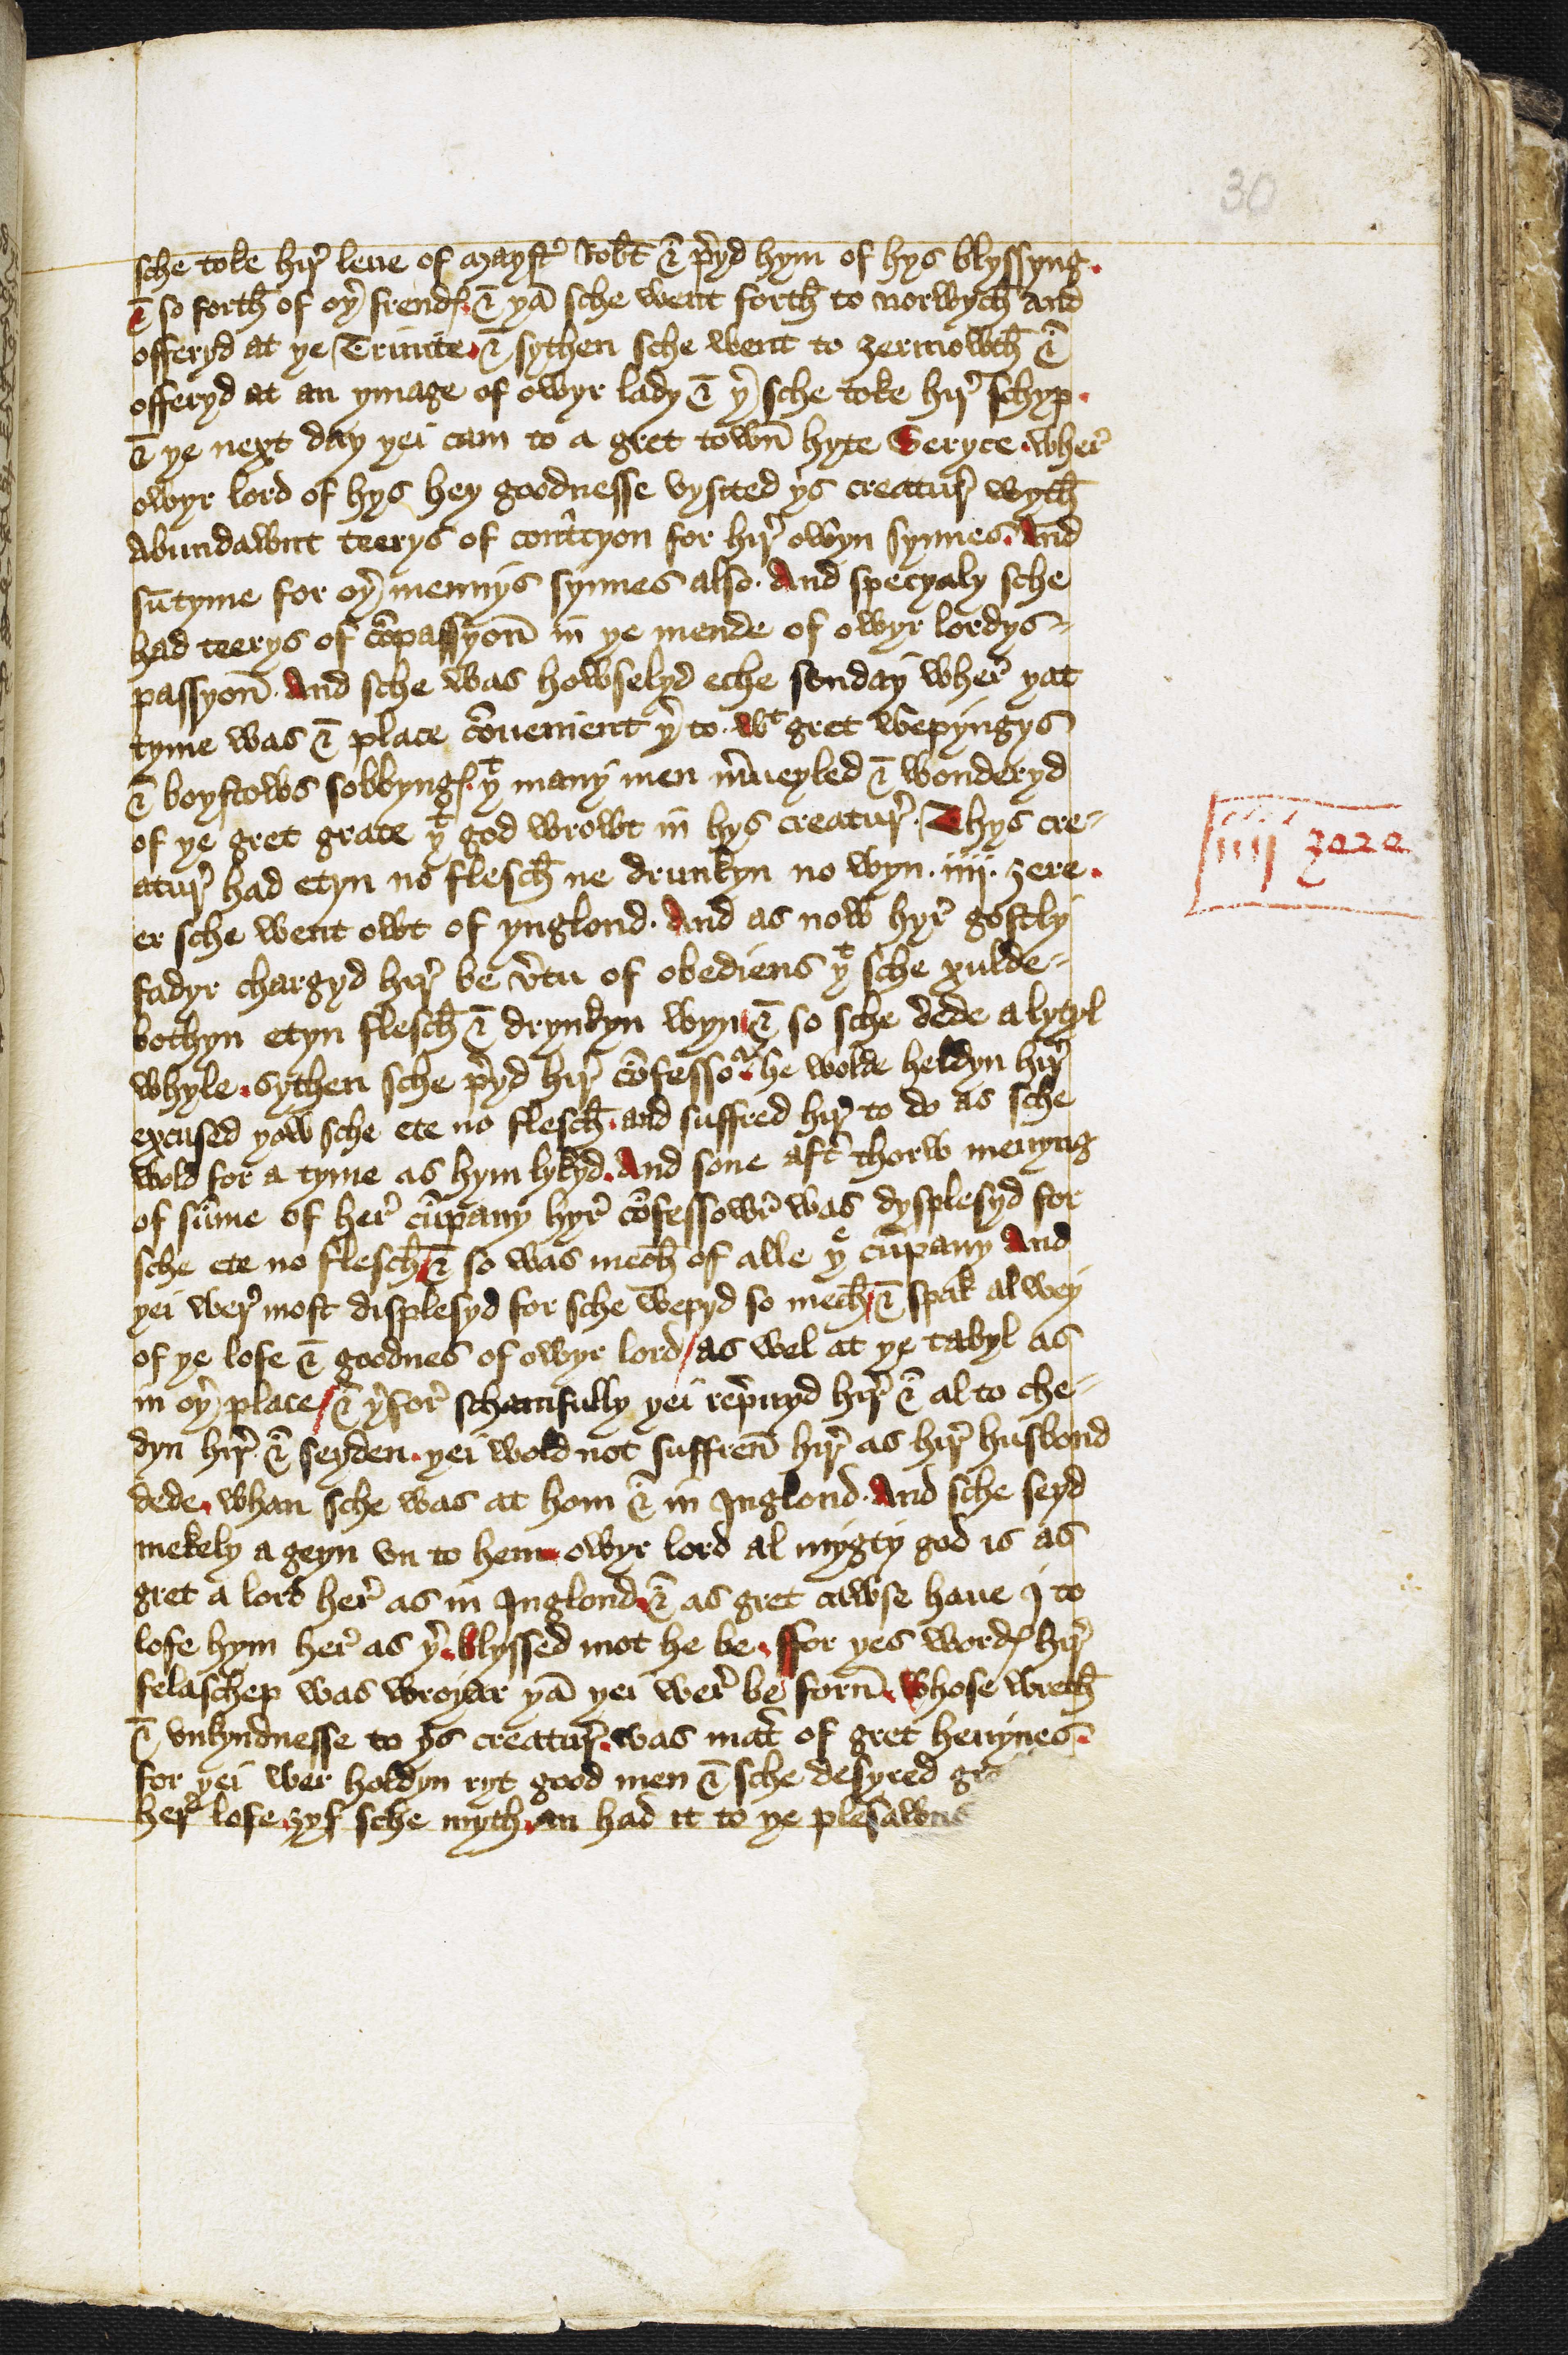 30
sche toke hir̛ leue of Mayst̛ Rob̛t & p̛yd hym of hys blyssyng.
& so forth̄ of oy̛ frendꝭ. & yā sche went forth̄ to Norwych̄ And
offeryd at ye Trinite. & sythen sche went to Ȝermowth̄ &
offeryd at an ymage of owyr lady & y̛ sche toke hir̛ schyp.
& ye next day yei cam to a gret town̄ hyte Ȝeryce. wher̛
owyr lord of hys hey goodnesse vysited ys creatur̛ wyth̄
Abundawnt teerys of cont̛cyon for hir̛ owyn synnes. And
sūtyme for oy̛ mennys synnes also. And specyaly sche
had teerys of cōpassyon̄ in ye mende of owyr lordys
passyon̄. And sche was howselyd eche sonday wher̛ yat
tyme was & place cōuenient y̛ to. wᵗ gret wepyngys
& boystows sobbyngꝭ. yᵗ many men m̛ueyled & wonderyd
of ye gret grace yᵗ god wrowt in hys creatur̛. Thys cre-
atur̛ had etyn no flesch̄ ne drunkyn no wyn .iiij. ȝere.
er sche went owt of ynglond. And as now hyr̛ gostly
fadyr chargyd hir̛ be v̛tu of obediens yᵗ sche xulde
bothyn etyn flesch̄ & drynkyn wyn / & so sche dede a lytyl
whyle. sythen sche p̛yd hir̛ cōfessoʳ. he wolde heldyn hir̛
excused yow sche ete no flesch̄. and suffred hir̛ to do as sche
wold for a tyme as hym lykyd. And sone aft̛ thorw menyng
of sūme of her̛ cūpany hyr̛ cōfessowr̛ was dysplesyd for
sche ete no flesch̄ / & so was mech̄ of alle yᵉ cūpany And
yei wer̛ most displesyd for sche wepyd so mech̄ / & spak alwey
of ye lofe & goodnes of owyr lord / as wel at ye tabyl as
in oy̛ place / & y̛for̛ schamfully yei rep̛uyd hir̛ & al to che-
dyn hir̛. & seyden. yei wold not suffren̄ hir̛ as hir̛ husbond
dede. whan sche was at hom & in Inglond. And sche seyd
mekely a geyn vn to hem owyr lord al mygty god is as
gret a lord her̛ as in Inglond. & as gret cawse haue I to
lofe hym her̛ as y̛. blyssed mot he be. ffor yes wordꝭ hir̛
felaschep was wroyar yā yei wer̛ be forn̄. whose wreth̄
& vnkyndnesse to ys creatur̛. was mat̛ of gret heuynes.
for yei wer holdyn ryt good men & sche desyred gr
her̛ lofe. ȝyf sche myth. an had it to ye plesawns
iiij ȝere